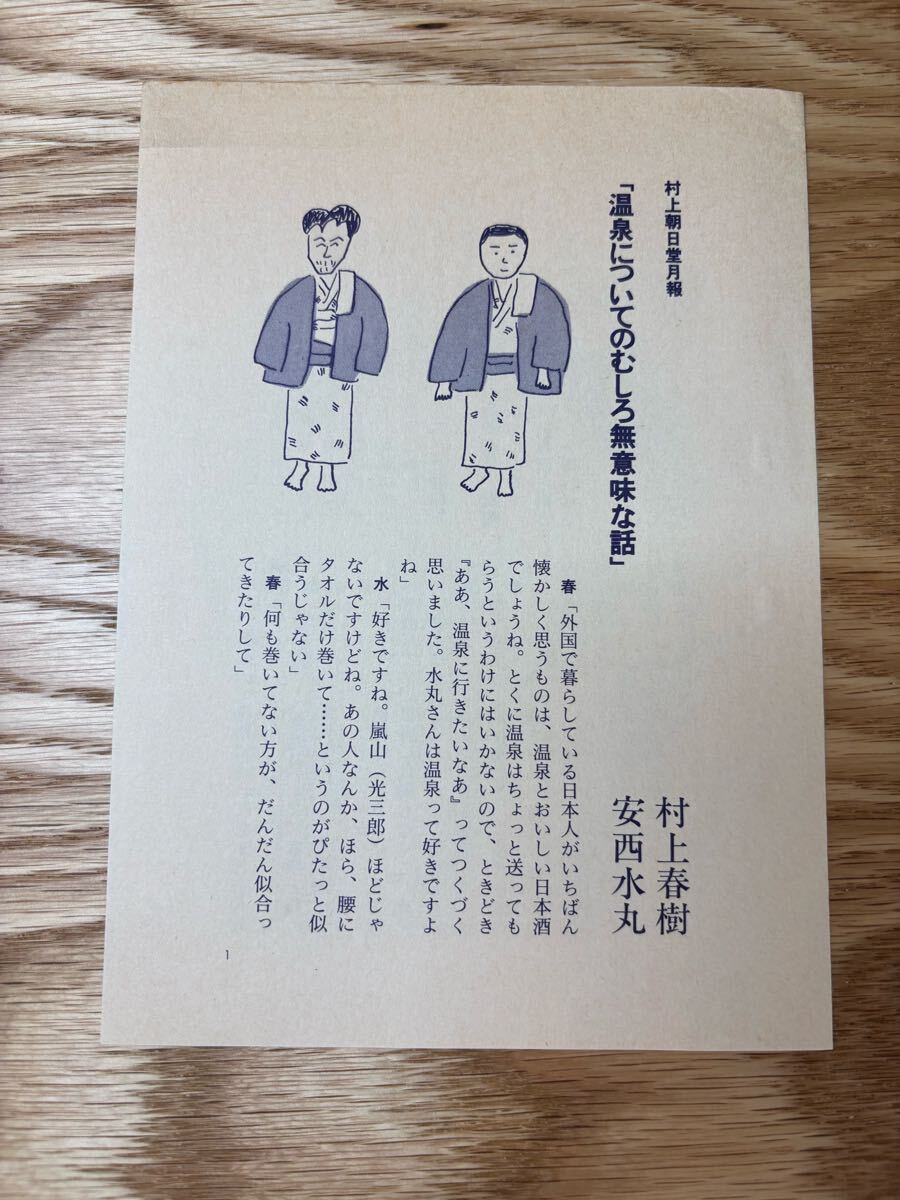 村上朝日堂月報
「温泉についてのむしろ無意味な話」
村上春樹
安西水丸
春「外国で暮らしている日本人がいちばん
懐かしく思うものは、温泉とおいしい日本酒
でしょうね。とくに温泉はちょっと送っても
らうというわけにはいかないので、ときどき
『ああ、温泉に行きたいなあ』ってつくづく
思いました。水丸さんは温泉って好きですよ
ね」
水「好きですね。嵐山（光三郎）ほどじゃ
ないですけどね。あの人なんか、ほら、腰に
タオルだけ巻いて……というのがぴたっと似
合うじゃない」
春「何も巻いてない方が、だんだん似合っ
てきたりして」
1